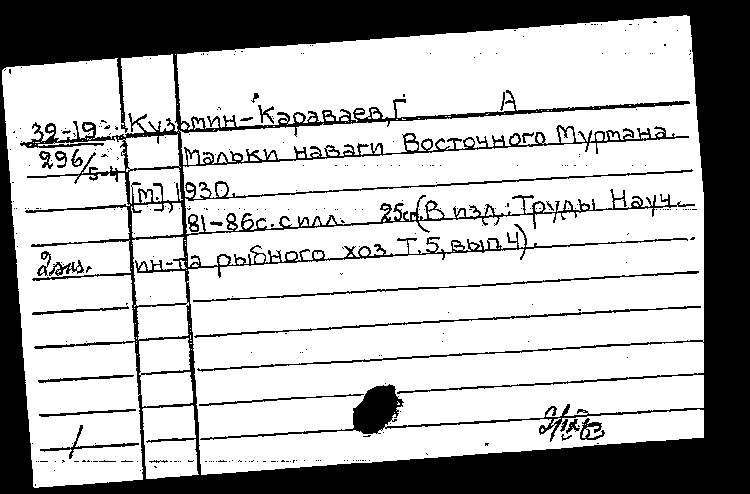 А
32-19 Кузьмин-Караваев, Г
296/5-4 Мальки наваги Восточного Мурмана.
[М.], 1930.
81-86с. с илл. 25см. (В изд.: Труды Науч.
2 экз. ин-та рыбного хоз. Т.5, вып.4).